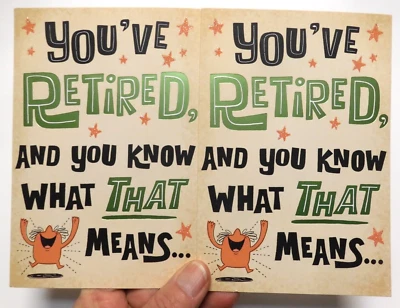 YOU'VE
RETiRED,
AND YOU KNOW
WHAT THAT
MEANS...
YOU'VE
RETiRED,
AND YOU KNOW
WHAT THAT
MEANS...